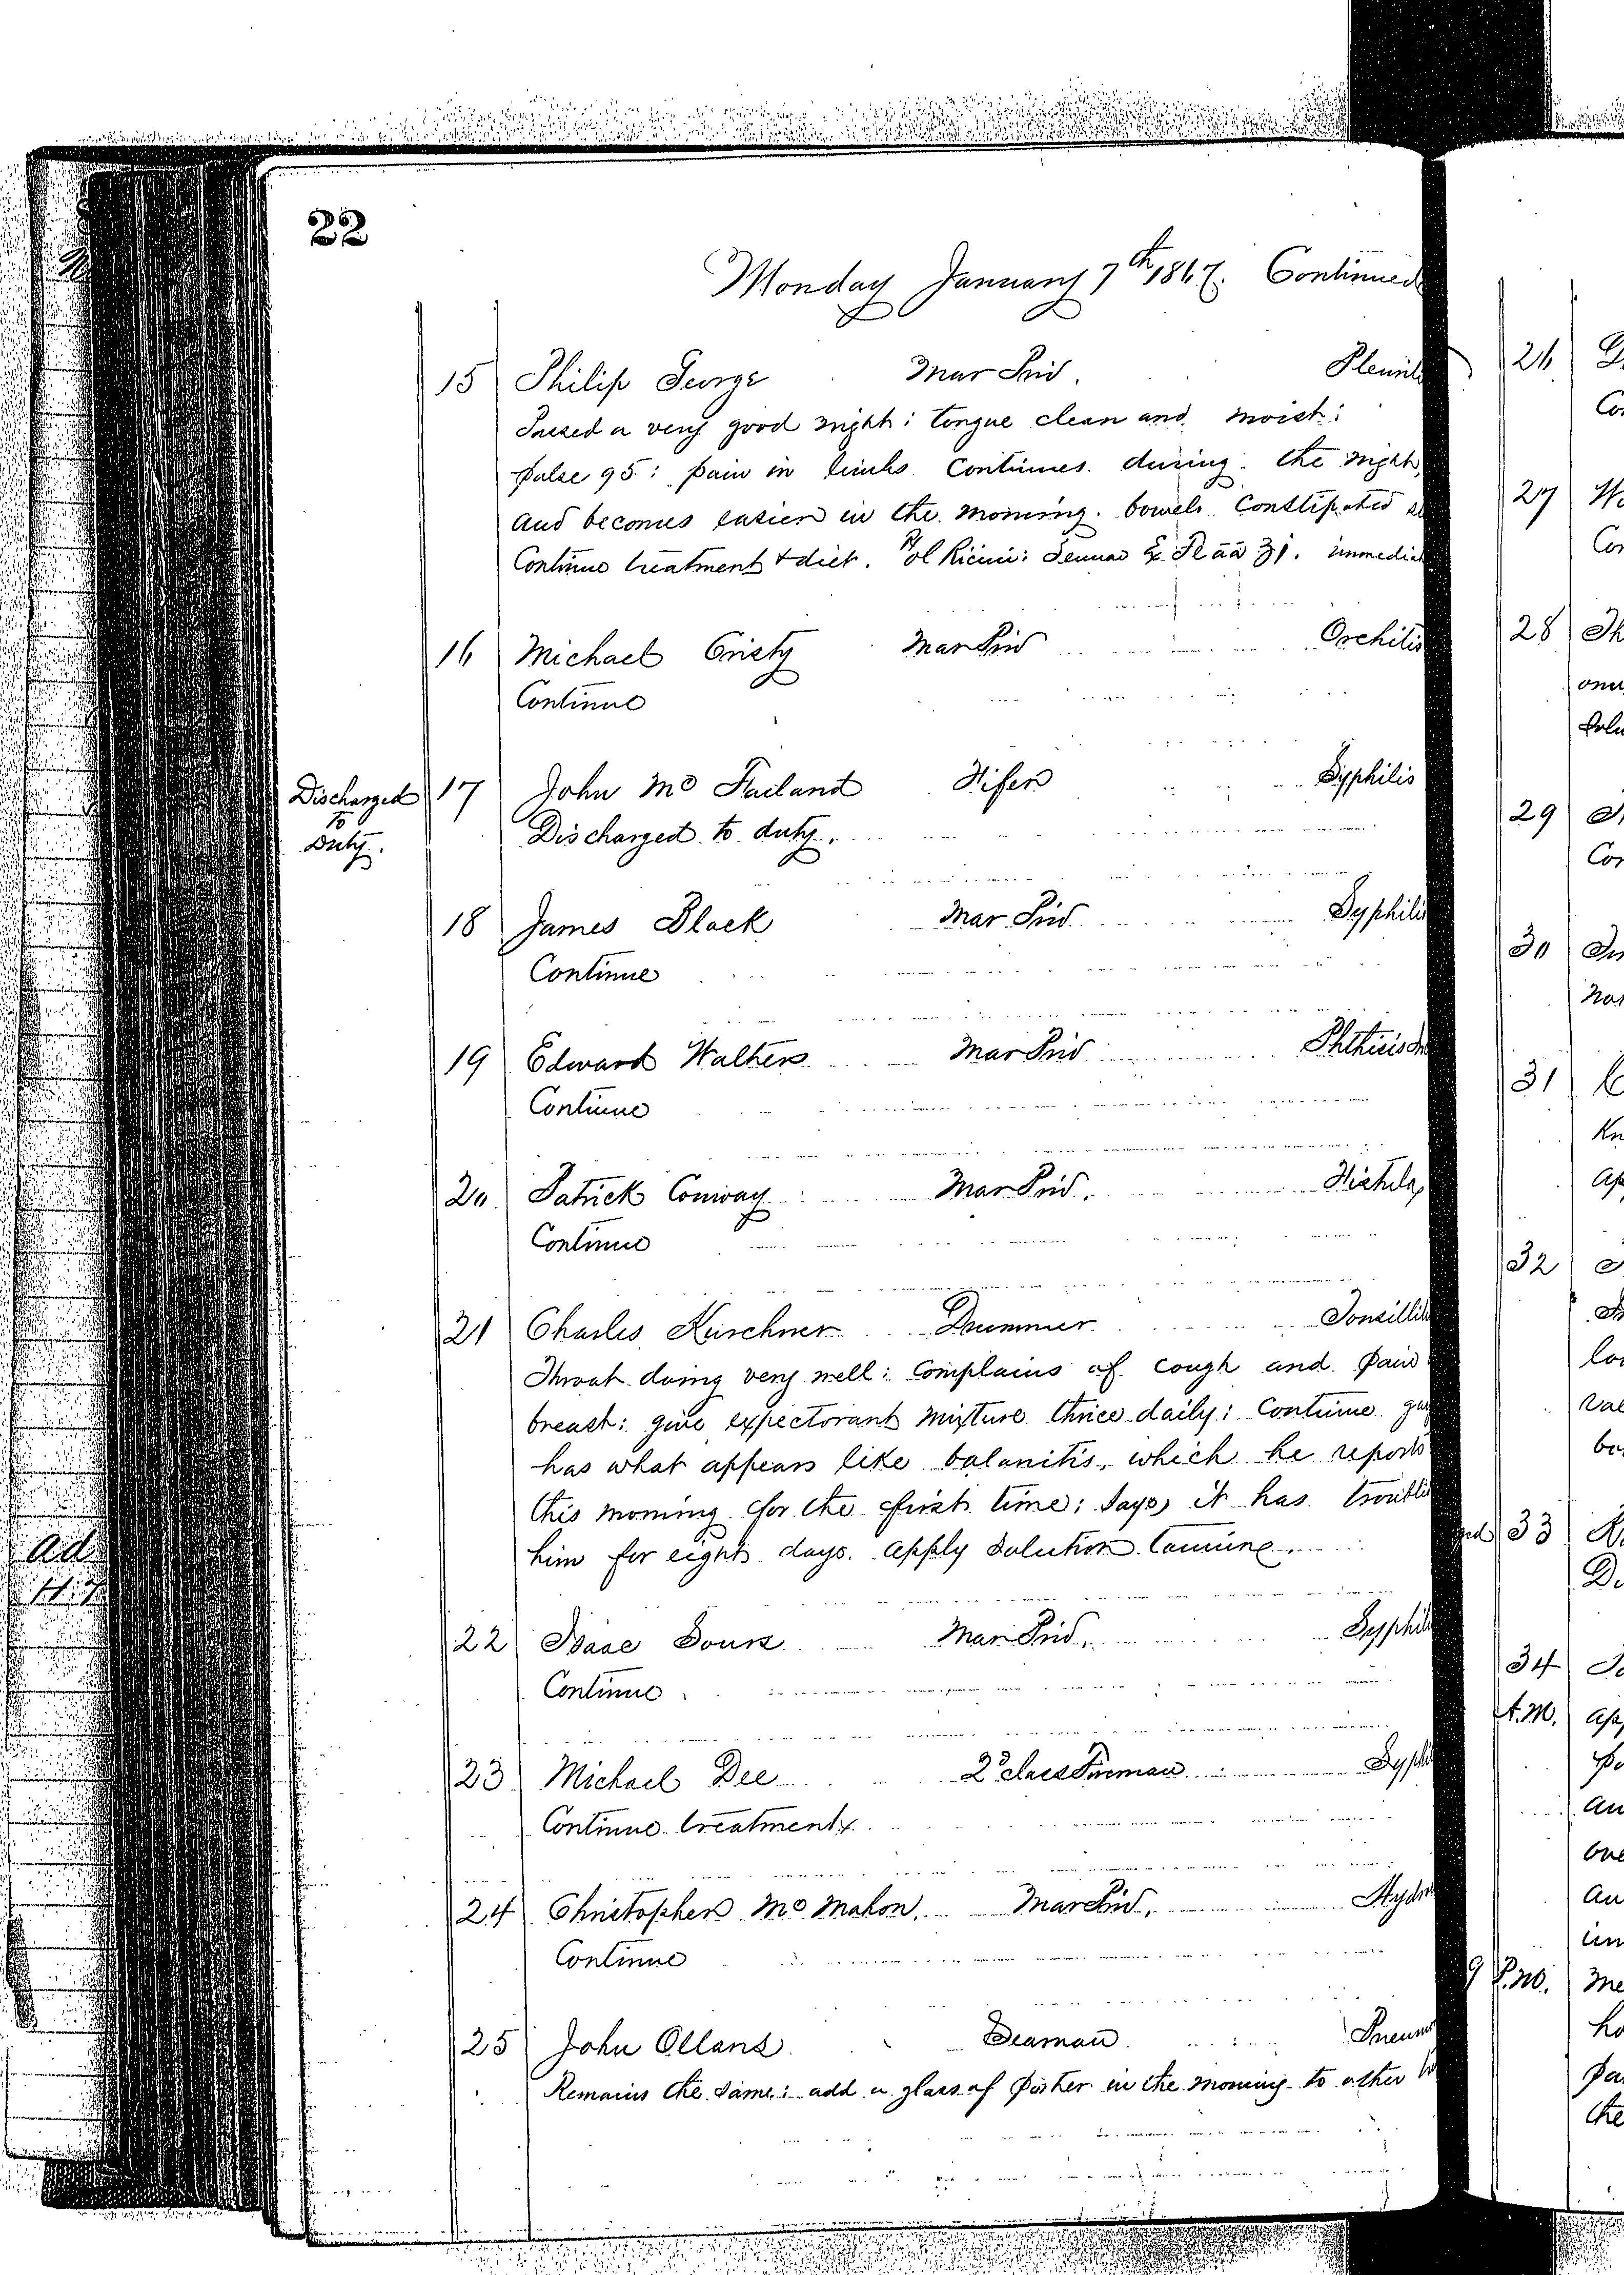 22
Monday January 7th 1867. Continued
15 Philip George Mar Priv. Pleurit
Passed a very good night: tongue clean and moist:
pulse 95: pain in limbs Continues during the night,
and becomes easier in the morning. bowels Constipated
Continue treatment & diet. Ol Ricini: Sennae Ex. Fl āā ʒi. immedia
16 Michael Cristy Mar Priv Orchitis
Continue
Discharged to Duty.
17 John Mc Failand Fifer Syphilis
Discharged to duty.
18 James Black Mar Priv Syphili
Continue
19 Edward Walters Mar Priv Phthisis
Continue
20 Patrick Conway Mar Priv. Fistula
Continue
21 Charles Kirschner Drummer Tonsillit
Throat doing very well: Complains of cough and pain
breast: give expectorant mixture thrice daily: Continue
has what appears like balanitis, which he reports
this morning for the first time; says it has troubl
him for eight days. apply Solution Tannine.
22 Isaac Mar Priv. Syphil
Continue
23 Michael Dee 2d class Fireman Syph
Continue treatment.
24 Christopher Mc Mahon. Mar Priv. Hydro
Continue
25 John Ollans Seaman Pneum
Remains the same: add a glass of porter in the morning to other
26
Co
27
Con
28 Th
29
Con
30
31
Kn
ap
32
lo
bo
33
D
34
A.M. ap
an
one
an
im
9 P.M. me
ha
pa
the
ad